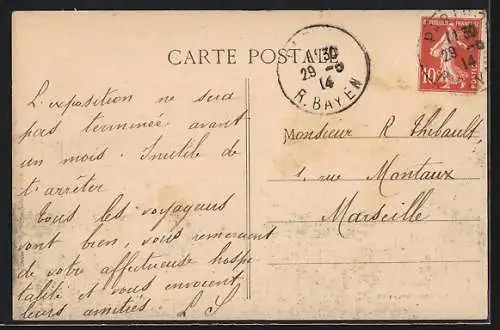 CARTE POSTALE
11 30
29 - 6
14
R. BAYEN
11 30
29 - 6
14
10c
POSTES
L'exposition ne sera
pas terminée avant
un mois. Inutile de
t'arrêter
Tous les voyageurs
vont bien, vous remercient
de votre affectueuse hospi
talité et vous envoient
leurs amitiés L S
Monsieur R Thibault,
1, rue Montaux
Marseille